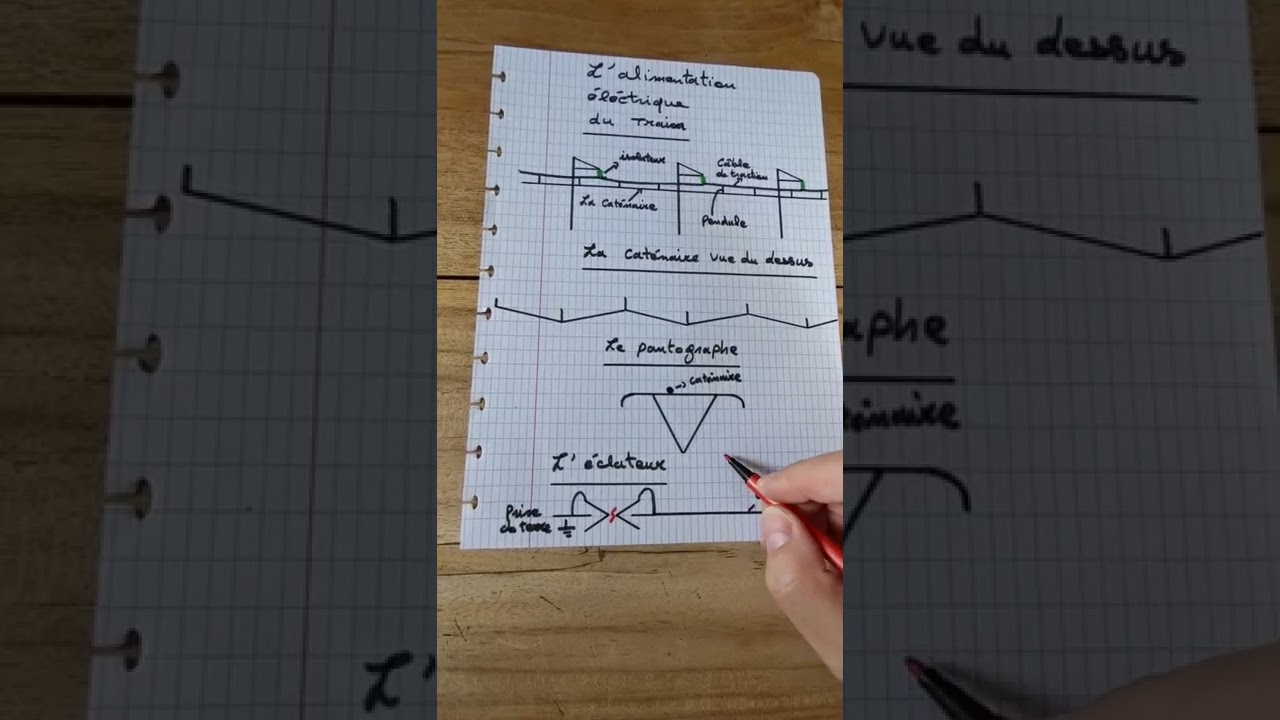 L'alimentation
éléctrique
du Train
isolateur
Câble
de traction
La Caténaire
Pendule
La Caténaire vue du dessus
Le pantographe
Caténaire
L'éclateur
Prise
de terre
vue du dessus
aphe
L'